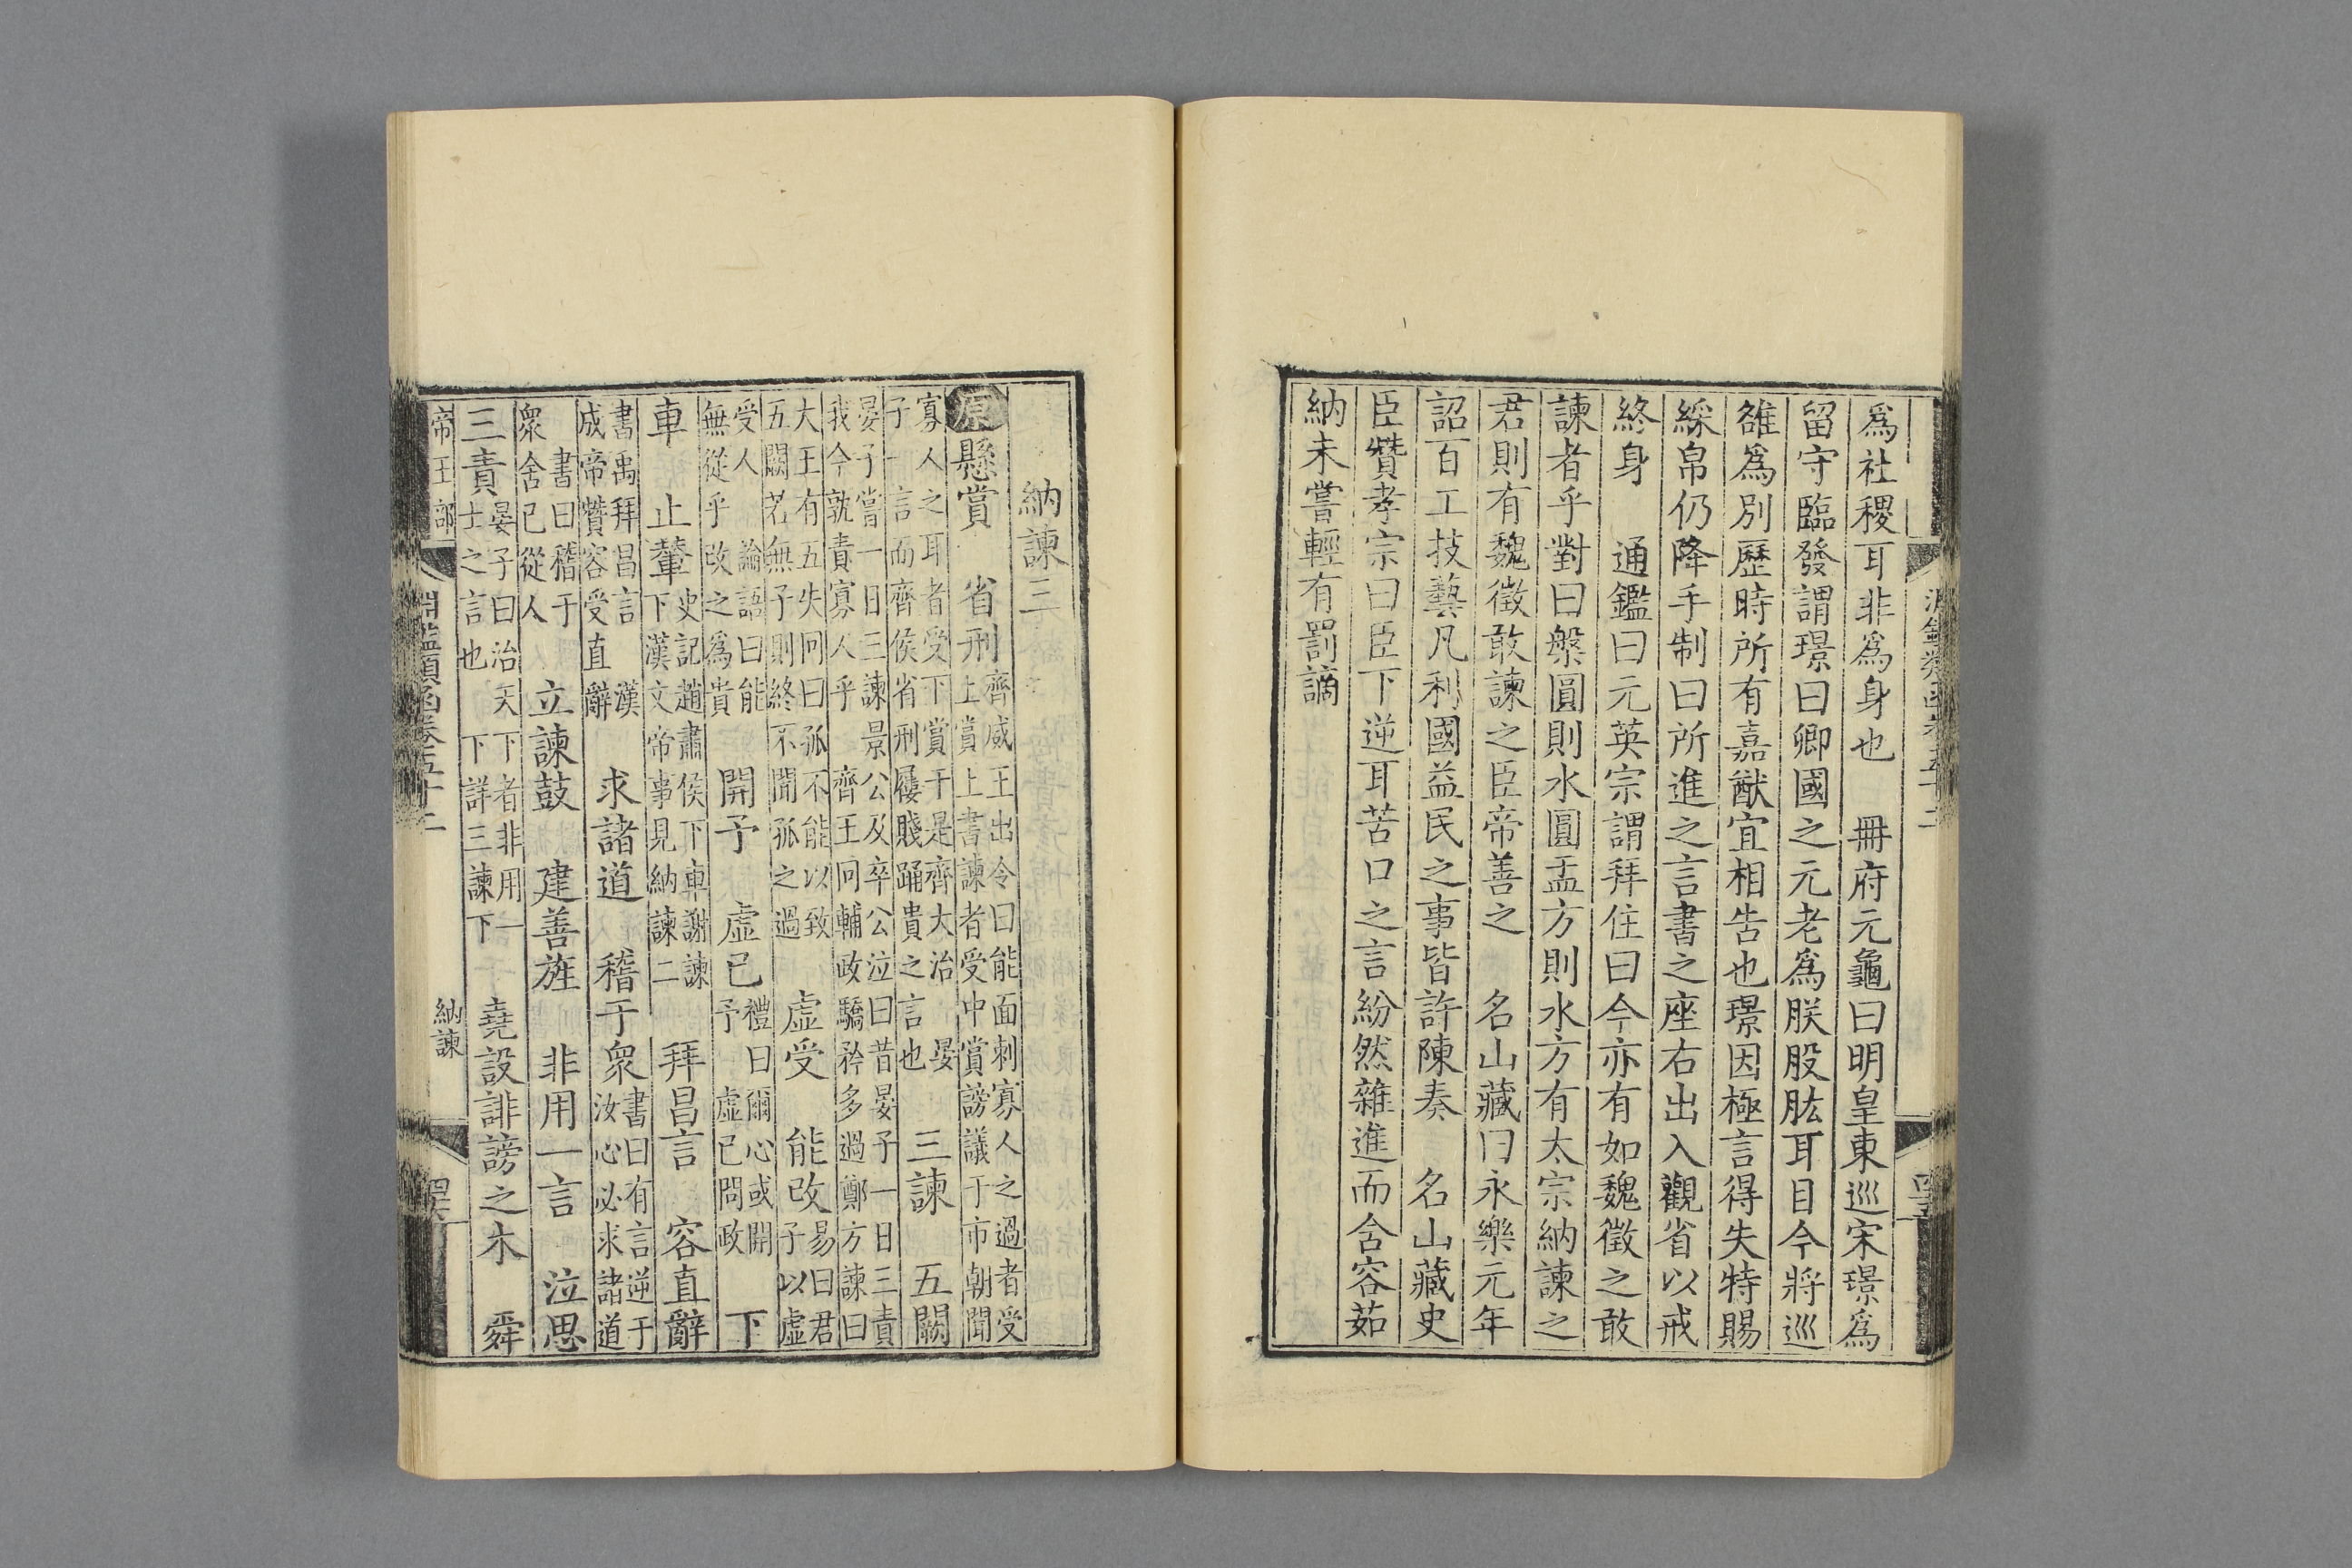 爲社稷耳非爲身也　冊府元龜曰明皇東巡宋璟爲
留守臨發謂璟曰卿國之元老爲朕股肱耳目今將巡
雒爲別歷時所有嘉猷宜相告也璟因極言得失特賜
綵帛仍降手制曰所進之言書之座右出入觀省以戒
終身　通鑑曰元英宗謂拜住曰今亦有如魏徵之敢
諫者乎對曰槃圓則水圓盂方則水方有太宗納諫之
君則有魏徵敢諫之臣帝善之　名山藏曰永樂元年
詔百工技藝凡利國益民之事皆許陳奏　名山藏史
臣贊孝宗曰臣下逆耳苦口之言紛然雜進而含容茹
納未嘗輕有罰謫
納諫三
原懸賞　省刑齊威王出令曰能面刺寡人之過者受
上賞上書諫者受中賞謗議于市朝聞
寡人之耳者受下賞于是齊大治　晏
子一言而齊侯省刑屨賤踊貴之言也
三諫　五闕
晏子嘗一日三諫景公及卒公泣曰昔晏子一日三責
我今孰責寡人乎　齊王問輔政驕矜多過鄭方諫曰
大王有五失問曰孤不能以致
五闕若無子則終不聞孤之過
虛受　能改易曰君
子以虛
受人　論語曰能
無從乎改之爲貴
開予　虛已禮曰爾心或開
予　虛已問政
下
車　止輦史記趙肅侯下車謝諫
下漢文帝事見納諫二
拜昌言　容直辭
書禹拜昌言　漢
成帝贊容受直辭
求諸道　稽于衆書曰有言逆于
汝心必求諸道
書曰稽于
衆舍已從人
立諫鼓　建善旌　非用一言　泣思
三責晏子曰治天下者非用一
士之言也　下詳三諫下
堯設誹謗之木　舜
帝王部
淵鑑類函卷五十二
納諫